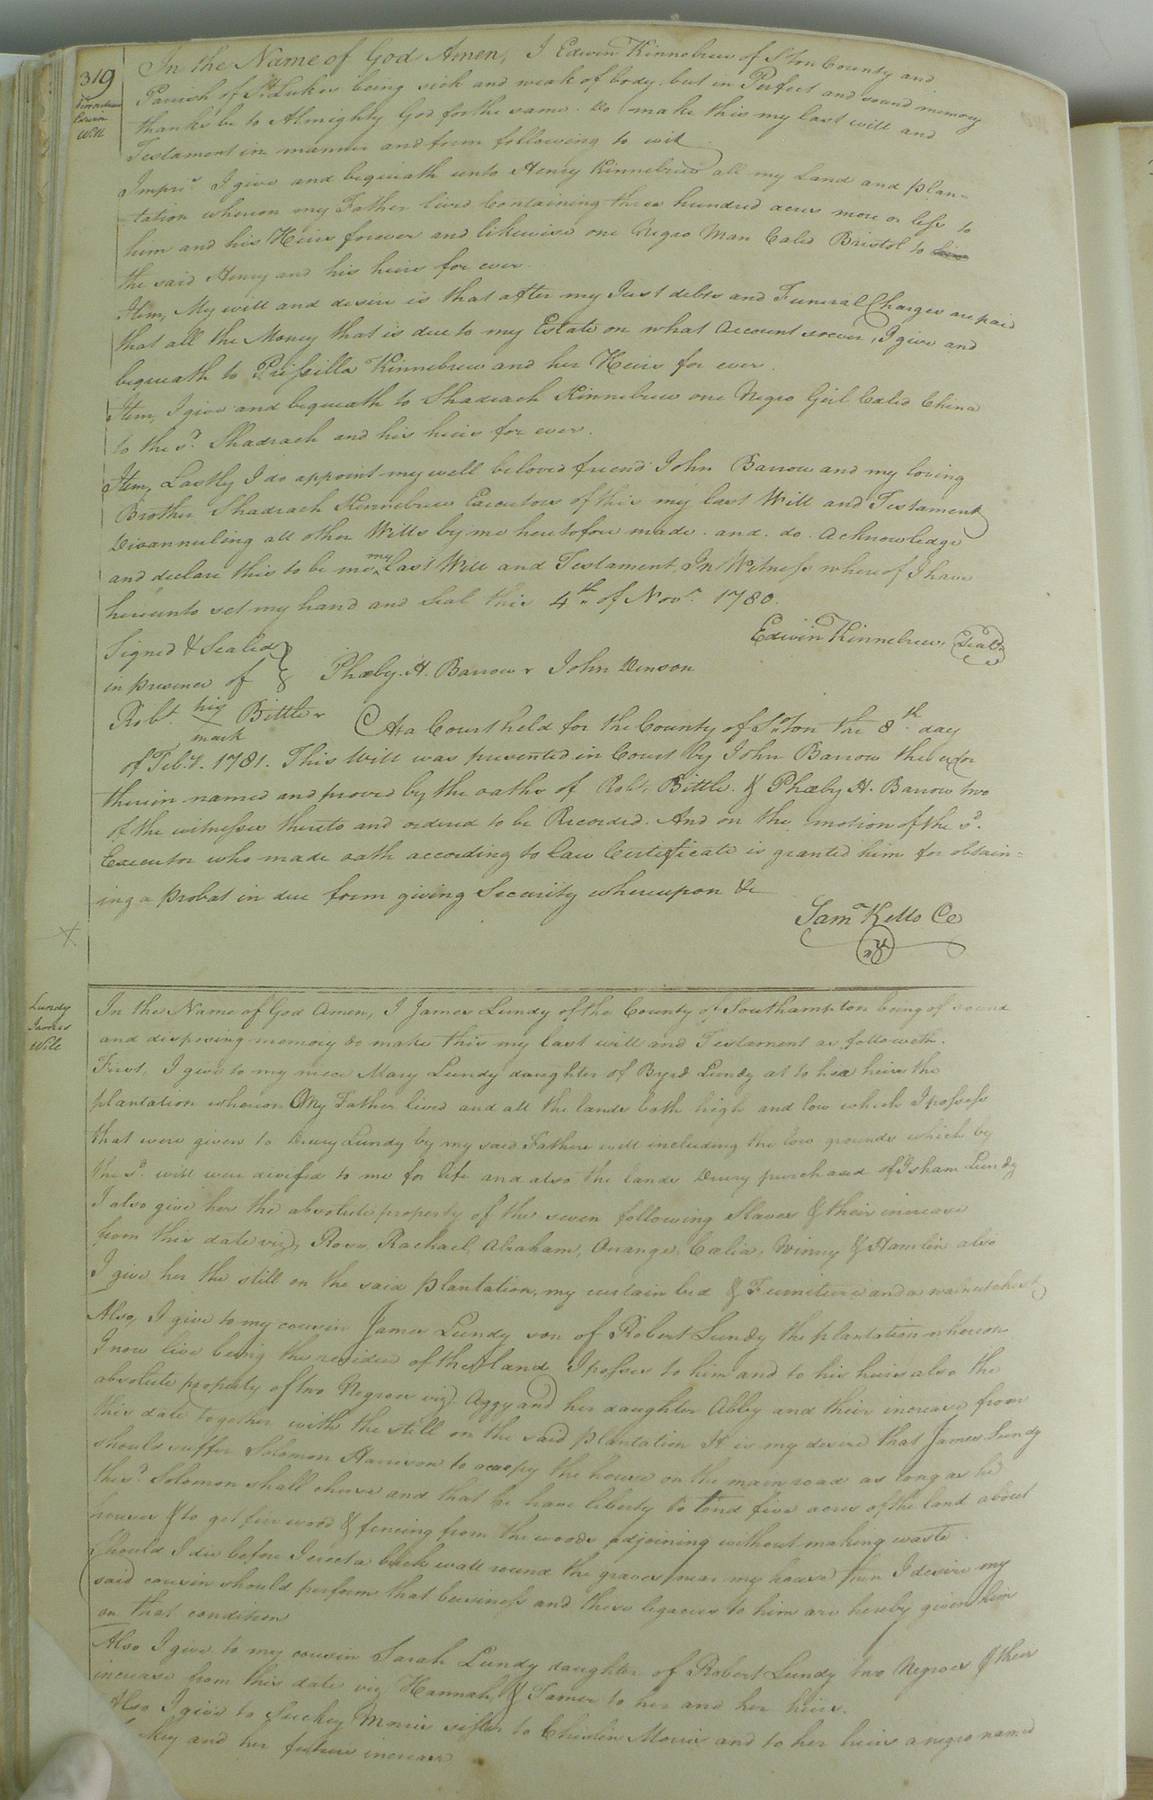 319
Kinnebrew
Edwin
Will
In the Name of God Amen, I Edwin Kinnebrew of S°ton County and
Parish of St Lukes being sick and weak of body, but in Perfect and sound memory
thanks be to Almighty God for the same. Do make this my last will and
Testament in manner and form following to wit
Imprs. I give and bequeath unto Henry Kinnebrew all my Land and plan-
-tation whereon my Father lived Containing three hundred acres more or less to
him and his Heirs forever and likewise one Negro Man Caled Bristol to him
the said Henry and his heirs for ever.
Item, My will and desire is that after my Just debts and Funeral Charges are paid
that all the Money that is due to my Estate on what Account soever, I give and
bequeath to Prissilla Kinnebrew and her Heirs for ever.
Item, I give and bequeath to Shadrach Kinnebrew one Negro Girl Caled China
to the sd. Shadrach and his heirs for ever.
Item, Lastly I do appoint my well beloved friend John Barrow and my loving
Brother Shadrach Kinnebrew Executors of this my last Will and Testament
Disannuling all other Wills by me heretofore made. and. do. Acknowledge
and declare this to be me my last Will and Testament, In Witness whereof I have
hereunto set my hand and Seal this 4th of Novr. 1780.
Edwin Kinnebrew, Seal
Signed & Sealed
in presence of } Phœby. H. Barrow John Denson
Robt. his mark Bittle
At a Court held for the County of S°ton the 8th day
of Feby. 1781. This Will was presented in Court by John Barrow the exor
therein named and proved by the oaths of Robt. Bittle. & Phœby H. Barrow two
of the witnesses thereto and ordered to be Recorded. And on the motion of the sd.
Executor who made oath according to law Certificate is granted him for obtain=
ing a Probat in due form giving Security whereupon &c
Saml Kello Cc
Lundy
James
Will
In the Name of God Amen, I James Lundy of the County of Southampton being of sound
and disposing memory do make this my last will and Testament as followeth.
First, I give to my niece Mary Lundy daughter of Byrd Lundy at to hea heirs the
plantation whereon My Father lived and all the lands both high and low which I possess
that were given to Drury Lundy by my said Fathers will including the low grounds which by
the sd will were devised to me for life and also the lands Drury purchased of Isham Lundy
I also give her the absolute property of the seven following Slaves & their increase
from this date viz, Rose, Rachael, Abraham, Orange, Cælia, Winny & Hamlin also
I give her the still on the said plantation, my curtain bed & Furniture and a walnut chest
Also, I give to my cousin James Lundy son of Robert Lundy the plantation whereon
I now live being the residue of the land I posses to him and to his heirs also the
absolute property of two Negroes viz. Aggy and her daughter Abby and their increase from
this date together with the still on the said plantation It is my desire that James Lundy
should suffer Solomon Harrison to occupy the house on the main road as long as he
the sd. Solomon shall chuse and that he have liberty to tend five acres of the land about
houses & to get fire wood & fencing from the woods adjoining without making waste
Should I die before I erect a brick wall round the graves near my house then I desire my
said cousin should perform that business and these legacies to him are hereby given him
on that condition
Also I give to my cousin Sarah Lundy daughter of Robert Lundy two Negroes & their
increase from this date viz Hannah, & Tamer to her and her heirs.
Also I give to Suckey Morris sister to Chislin Morris and to her heirs a negro named
and her future increase